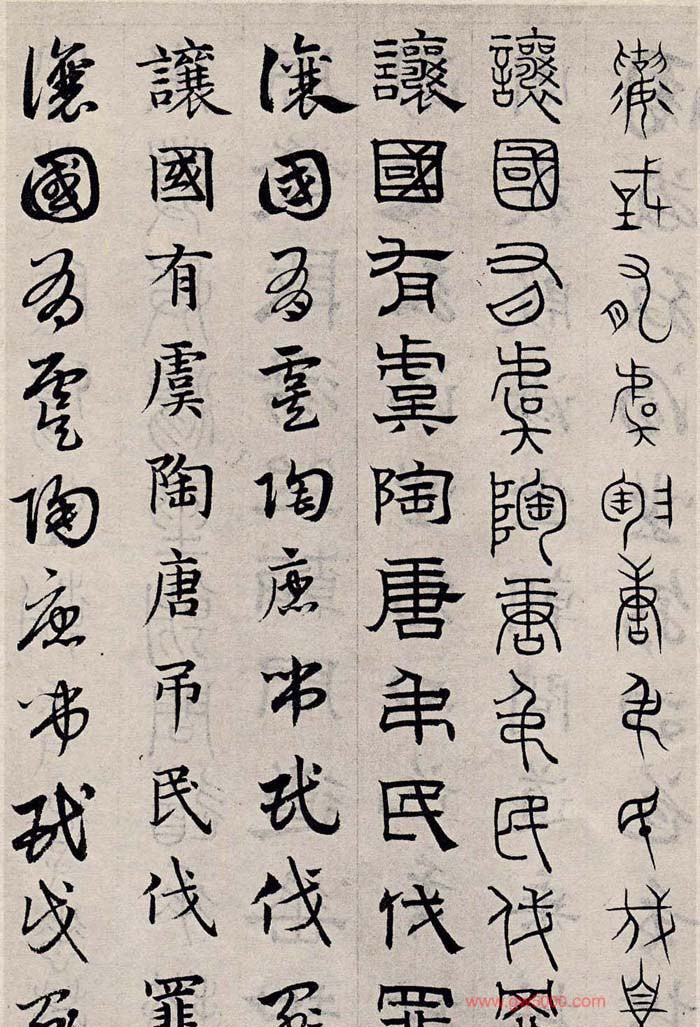 讓國有虞陶唐弔民伐罪
讓國有虞陶唐弔民伐罪
讓國有虞陶唐弔民伐罪
讓國有虞陶唐弔民伐罪
讓國有虞陶唐吊民伐罪
讓國有虞陶唐弔民伐罪